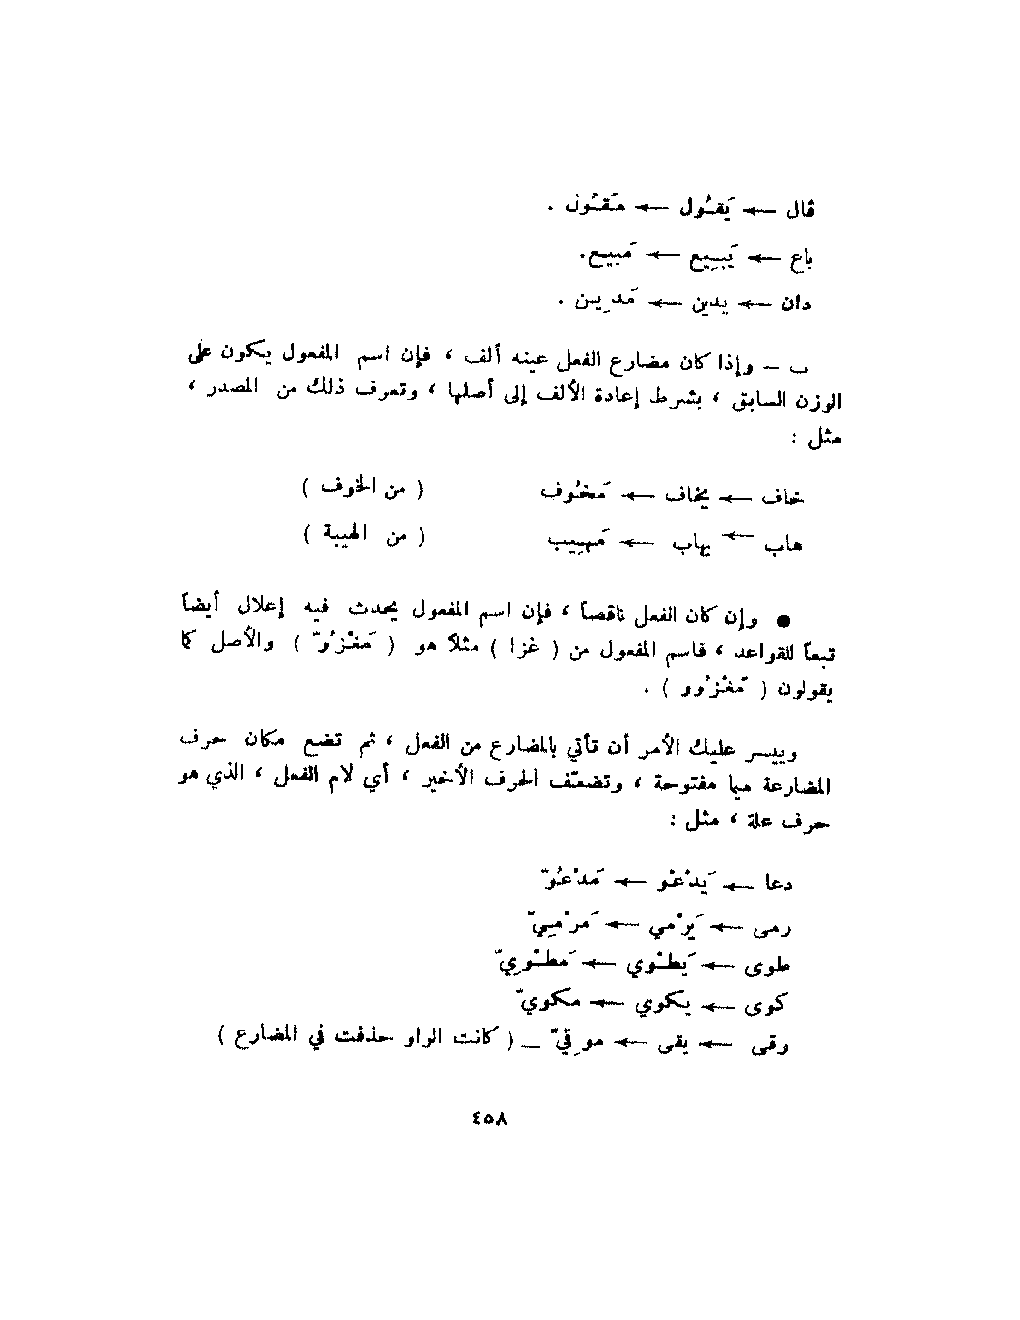 قال ← يَقُول ← مَقُول .
باع ← يَبِيع ← مَبِيع.
دان ← يدين ← مَدِين .
ب – وإذا كان مضارع الفعل عينه ألف ، فإن اسم المفعول يكون على
الوزن السابق ، بشرط إعادة الألف إلى أصلها ، وتعرف ذلك من المصدر ،
مثل :
خاف ← يخاف ← مَخُوف ( من الخوف )
هاب ← يهاب ← مَهِيب ( من الهيبة )
● وإن كان الفعل ناقصاً ، فإن اسم المفعول يحدث فيه إعلال أيضاً
تبعاً للقواعد ، فاسم المفعول من ( غزا ) مثلاً هو ( مَغْزُوّ ) والأصل كما
يقولون ( مَغْزُوو ) .
وييسر عليك الأمر أن تأتي بالمضارع من الفعل ، ثم تضع مكان حرف
المضارعة ميما مفتوحة ، وتضعّف الحرف الأخير ، أي لام الفعل ، الذي هو
حرف علة ، مثل :
دعا ← يَدْعُو ← مَدْعُوّ
رمى ← يَرْمي ← مَرْمِيّ
طوى ← يَطْوي ← مَطْوِيّ
كوى ← يكوي ← مكويّ
وقى ← يقى ← موقِيّ _ ( كانت الواو حذفت في المضارع )
٤٥٨